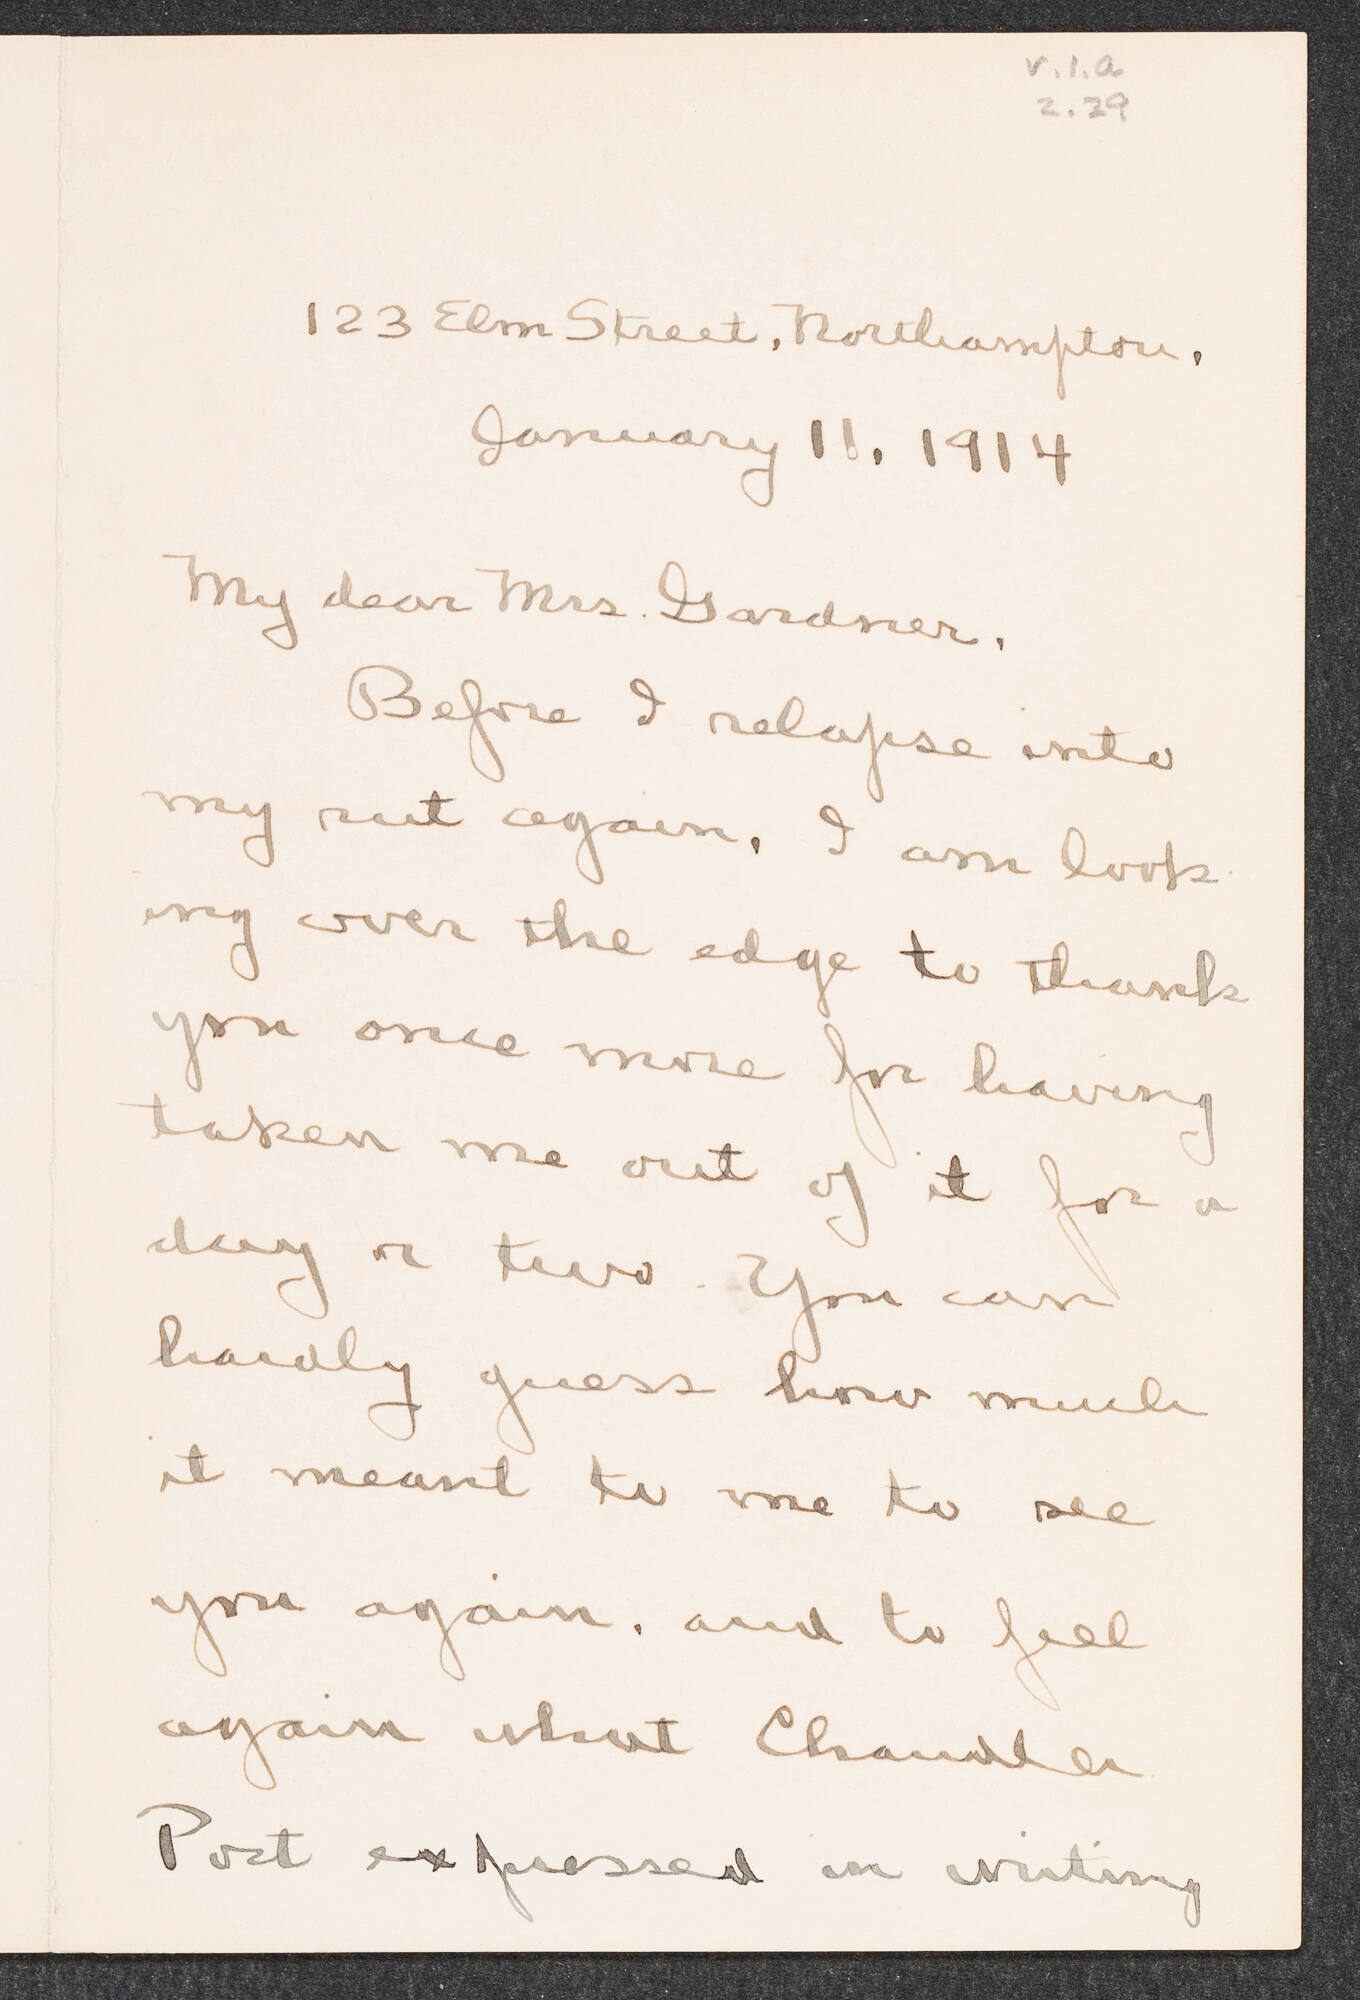 v.1.a
2.29
123 Elm Street, Northampton,
January 11, 1914
My dear Mrs. Gardner,
Before I relapse into
my rut again, I am look
ing over the edge to thank
you once more for having
taken me out of it for a
day or two. You can
hardly guess how much
it meant to me to see
you again, and to feel
again what Chandler
Post expressed in writing